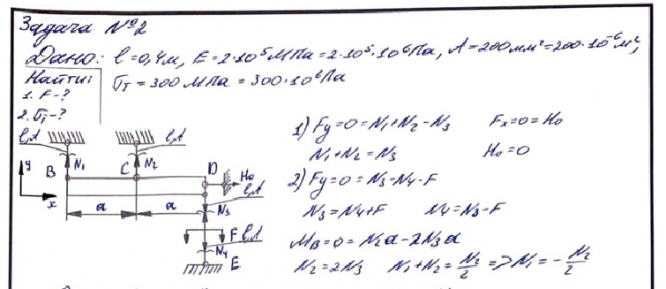 Задача №2
Дано: l=0,4м, E=2·10⁵МПа=2·10⁵·10⁶Па, A=200мм²=200·10⁻⁶м²,
Найти: σт=300МПа=300·10⁶Па
1. F-?
2. σi-?
l,A l,A
N1 N2
B C D H0
y
x
a a
l,A
N3
F l,A
N4
E
1) Fy=0=N1+N2-N3 Fx=0=H0
N1+N2=N3 H0=0
2) Fy=0=N3-N4-F
N3=N4+F N4=N3-F
MB=0=N2a-2N3a
N2=2N3 N1+N2=N2/2 => N1=-N2/2